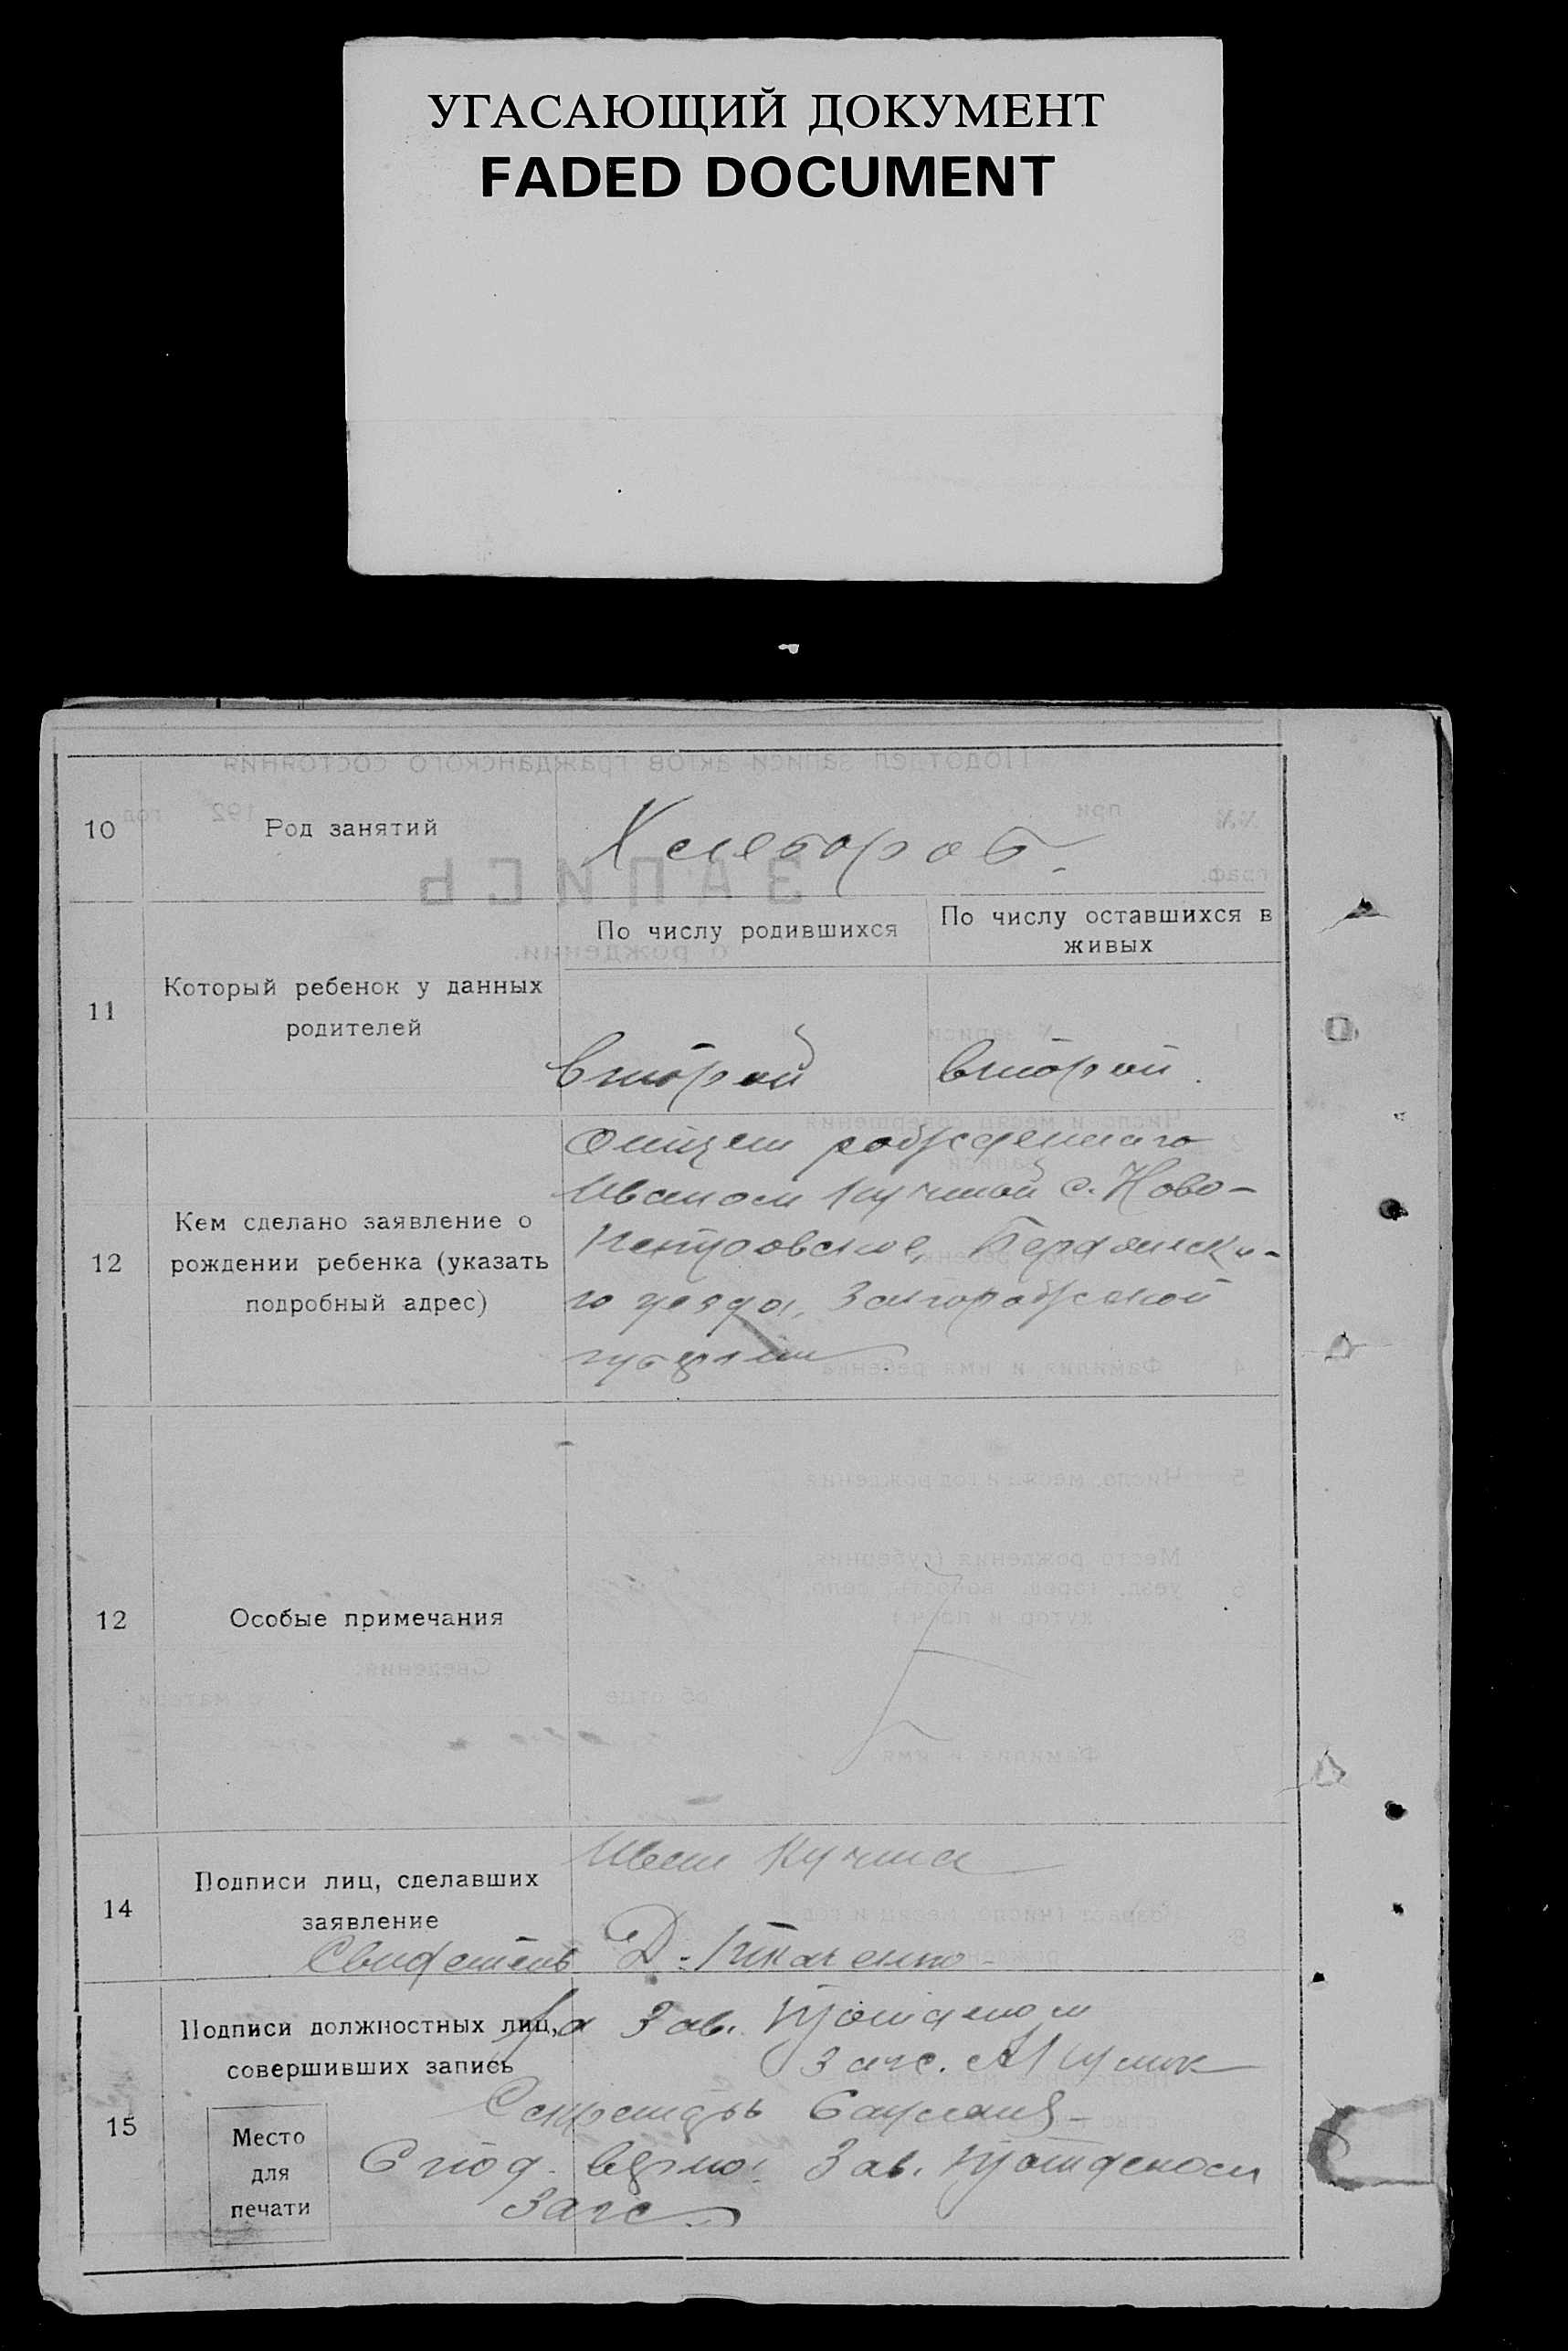 УГАСАЮЩИЙ ДОКУМЕНТ
FADED DOCUMENT
10
Род занятий
Хлебороб.
11
Который ребенок у данных
родителей
По числу родившихся
По числу оставшихся в
живых
второй
второй.
12
Кем сделано заявление о
рождении ребенка (указать
подробный адрес)
Отцем рожденнаго
Иваном Кучмой с. Ново-
Петровское, Бердянска-
го уезда, Запорожской
губернии
12
Особые примечания
14
Подписи лиц, сделавших
заявление
Иван Кучма
Свидетель Д. Ткаченко
15
Подписи должностных лиц,
совершивших запись
За Зав. Подотделом
Загс.
Секретарь
Место
для
печати
С под. верно: Зав. Подотделом
Загс